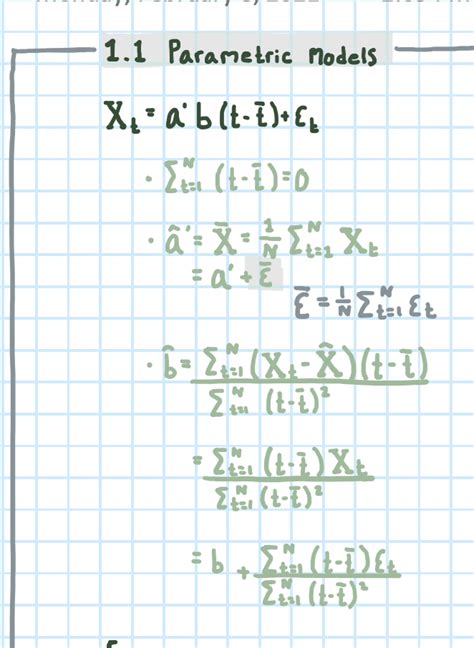 1.1 Parametric Models
X_t = a' b (t-t̄) + ε_t
· Σ_{t=1}^N (t-t̄) = 0
· â' = X̄ = 1/N Σ_{t=1}^N X_t
= a' + ε̄
ε̄ = 1/N Σ_{t=1}^N ε_t
· b̂ = Σ_{t=1}^N (X_t - X̂)(t-t̄) / Σ_{t=1}^N (t-t̄)²
= Σ_{t=1}^N (t-t̄) X_t / Σ_{t=1}^N (t-t̄)²
= b + Σ_{t=1}^N (t-t̄) ε_t / Σ_{t=1}^N (t-t̄)²